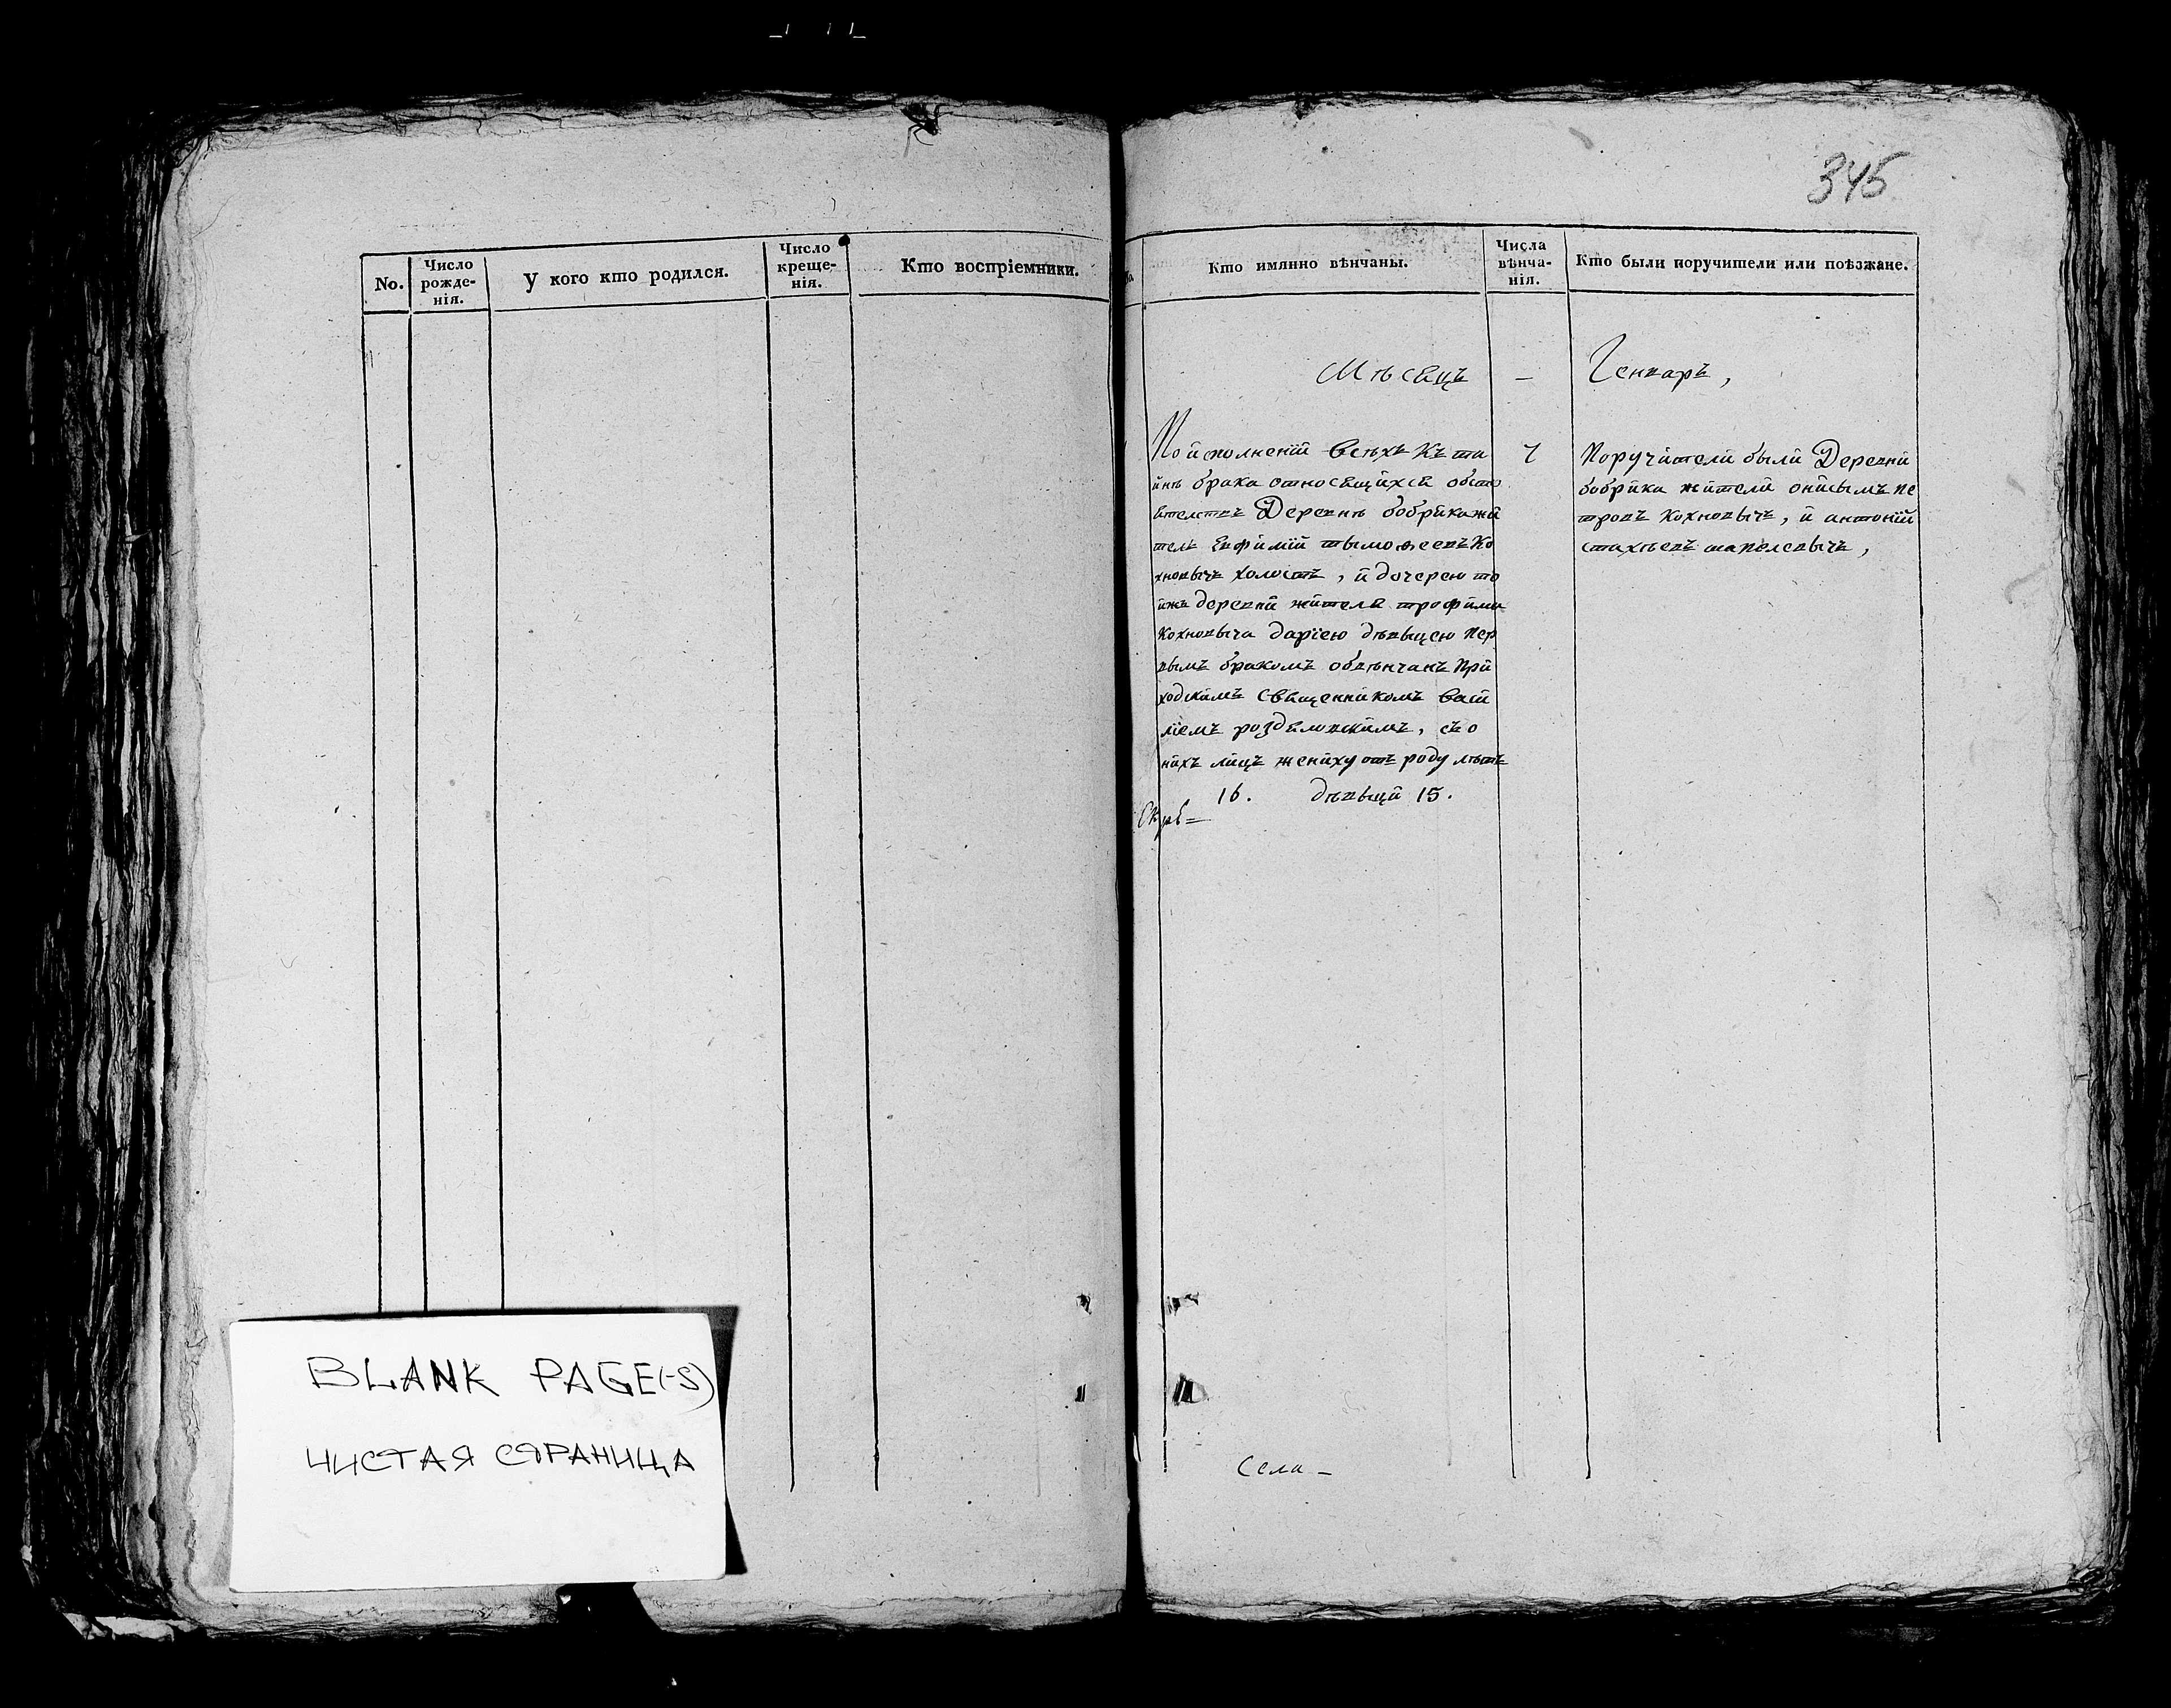 No.
Число рожде-нія.
У кого кто родился.
Число креще-нія.
Кто воспріемники.
BLANK PAGE(-S)
ЧИСТАЯ СТРАНИЦА
345
Кто имянно вѣнчаны.
Числа вѣнча-нія.
Кто были поручители или поѣзжане.
Мѣсяцъ – Генваръ,
По исполненіи всѣхъ къ та
инѣ брака относящихся обсто
ятелствъ Деревнѣ бобрика жи
тель Евфимій тымофеевъ Ко
хновычъ холостъ, и дочерею то
ижъ деревни жителя трофима
Кохновыча даріею дѣвыцею пер
вымъ бракомъ обвѣнчанъ при
ходскимъ священникомъ васи
ліемъ роздяловскимъ, съ о
нихъ лицъ жениху отъ роду лѣтъ
16. дѣвыци 15.
7
Поручители были Деревни
бобрика жители онисымъ пе
тровъ Кохновычъ, и антоній
стахѣевъ
Села –